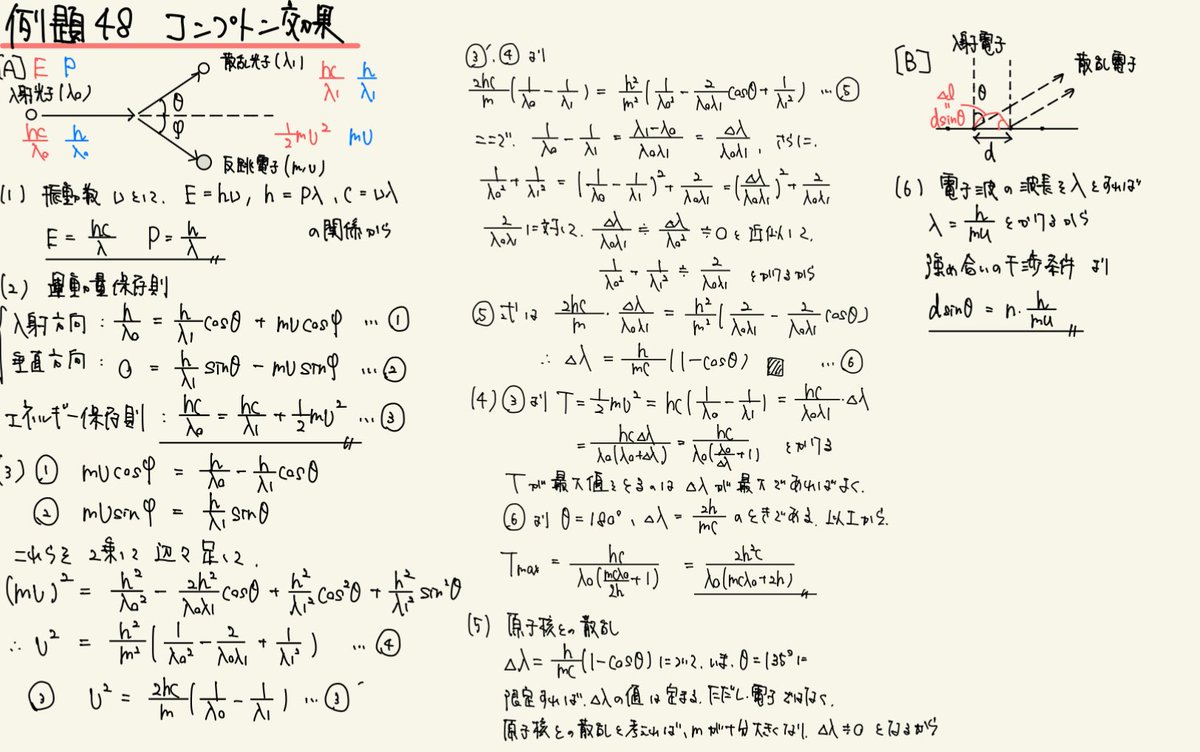 例題48 コンプトン効果
[A] E P
散乱光子(λ₁) hc/λ₁ h/λ₁
入射光子(λ₀)
θ
φ
hc/λ₀ h/λ₀
1/2mυ² mυ
反跳電子(m,υ)
(1) 振動数νとして、E=hν, h=Pλ, c=νλ
の関係から
E=hc/λ P=h/λ
(2) 運動量保存則
入射方向: h/λ₀ = h/λ₁cosθ + mυcosφ …①
垂直方向: 0 = h/λ₁ sinθ - mυsinφ …②
エネルギー保存則: hc/λ₀ = hc/λ₁ + 1/2mυ² …③
(3) ① mυcosφ = h/λ₀ - h/λ₁cosθ
② mυsinφ = h/λ₁ sinθ
これらを2乗して辺々足して、
(mυ)² = h²/λ₀² - 2h²/λ₀λ₁cosθ + h²/λ₁²cos²θ + h²/λ₁²sin²θ
∴ υ² = h²/m²(1/λ₀² - 2/λ₀λ₁ + 1/λ₁²) …④
③ υ² = 2hc/m(1/λ₀ - 1/λ₁) …③´
③´,④より
2hc/m(1/λ₀ - 1/λ₁) = h²/m²(1/λ₀² - 2/λ₀λ₁cosθ + 1/λ₁²) …⑤
ここで、1/λ₀ - 1/λ₁ = λ₁-λ₀/λ₀λ₁ = Δλ/λ₀λ₁, さらに、
1/λ₀² + 1/λ₁² = (1/λ₀ - 1/λ₁)² + 2/λ₀λ₁ = (Δλ/λ₀λ₁)² + 2/λ₀λ₁
2/λ₀λ₁に対して、Δλ/λ₀λ₁ ≒ Δλ/λ₀² ≒0と近似して、
1/λ₀² + 1/λ₁² ≒ 2/λ₀λ₁ とかけるから
⑤式は 2hc/m・Δλ/λ₀λ₁ = h²/m²(2/λ₀λ₁ - 2/λ₀λ₁cosθ)
∴ Δλ = h/mc(1-cosθ) …⑥
(4) ③より T=1/2mυ² = hc(1/λ₀ - 1/λ₁) = hc/λ₀λ₁・Δλ
= hcΔλ/λ₀(λ₀+Δλ) = hc/λ₀(λ₀/Δλ+1) とかける
Tが最大値をとるのはΔλが最大であればよく、
⑥より θ=180°、Δλ=2h/mc のときである。以上から、
Tmax = hc/λ₀(mcλ₀/2h+1) = 2h²c/λ₀(mcλ₀+2h)
(5) 原子核との散乱
Δλ=h/mc(1-cosθ)について、いま、θ=135°に
限定すれば、Δλの値は定まる。ただし、電子ではなく、
原子核との散乱を考えれば、mが十分大きくなり、Δλ≒0となるから
[B]
入射電子
散乱電子
Δl
=
dsinθ
θ
d
(6) 電子波の波長をλとすれば
λ=h/mυ とかけるから
強め合いの干渉条件より
dsinθ = n・h/mυ